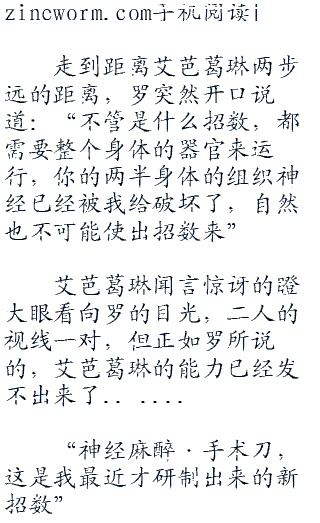 zincworm.com手机阅读|
走到距离艾芭葛琳两步
远的距离，罗突然开口说
道：“不管是什么招数，都
需要整个身体的器官来运
行，你的两半身体的组织神
经已经被我给破坏了，自然
也不可能使出招数来”
艾芭葛琳闻言惊讶的瞪
大眼看向罗的目光，二人的
视线一对，但正如罗所说
的，艾芭葛琳的能力已经发
不出来了.. ....
“神经麻醉·手术刀，
这是我最近才研制出来的新
招数”